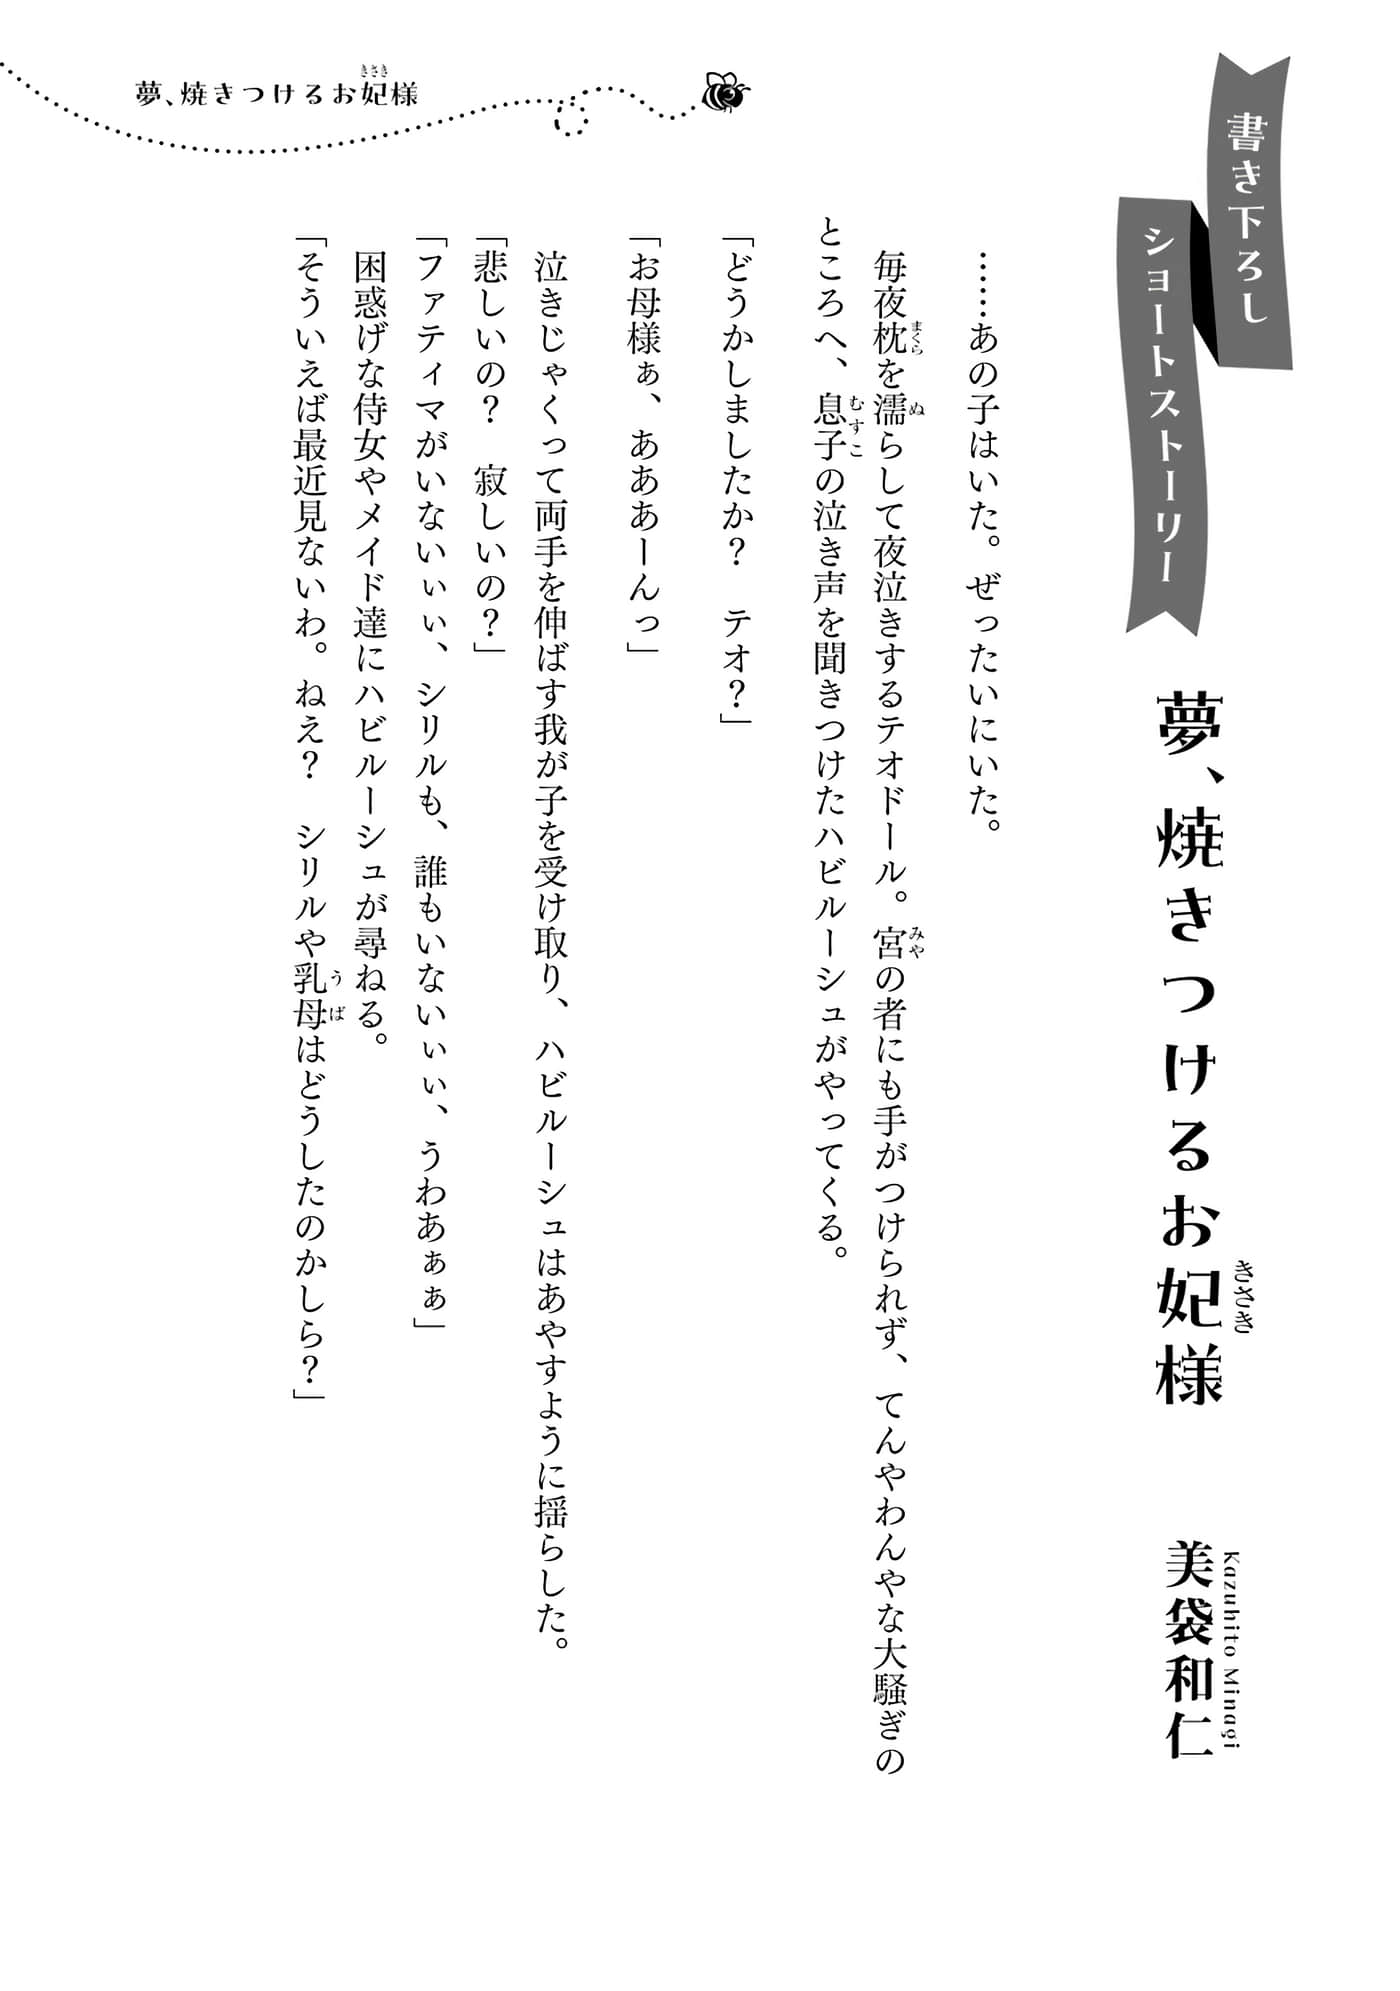 書き下ろし
ショートストーリー
夢、焼きつけるお妃様
きさき
美袋和仁
Kazuhito Minagi
夢、焼きつけるお妃様
きさき
……あの子はいた。ぜったいにいた。
毎夜枕を濡らして夜泣きするテオドール。宮の者にも手がつけられず、てんやわんやな大騒ぎの
まくら
ぬ
みや
ところへ、息子の泣き声を聞きつけたハビルーシュがやってくる。
むすこ
「どうかしましたか？　テオ？」
「お母様ぁ、あああーんっ」
泣きじゃくって両手を伸ばす我が子を受け取り、ハビルーシュはあやすように揺らした。
「悲しいの？　寂しいの？」
「ファティマがいないぃぃ、シリルも、誰もいないぃぃ、うわあぁぁ」
困惑げな侍女やメイド達にハビルーシュが尋ねる。
「そういえば最近見ないわ。ねえ？　シリルや乳母はどうしたのかしら？」
うば